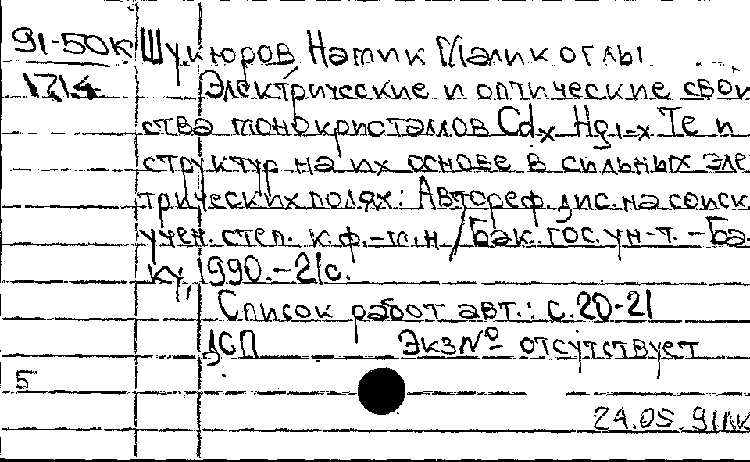 91-50к Шукюров Натик Маликоглы
1714 Электрические и оптические свой
ства монокристаллов CdxHg1-xTe и
структур на их основе в сильных эле
трических полях: Автореф. дис. на соиск
учен. степ. к.ф.-м.н / Бак. гос. ун-т. - Ба
ку, 1990. - 21с.
Список работ авт.: с. 20-21
ДСП Экз№ отсутствует
5
24.05.91